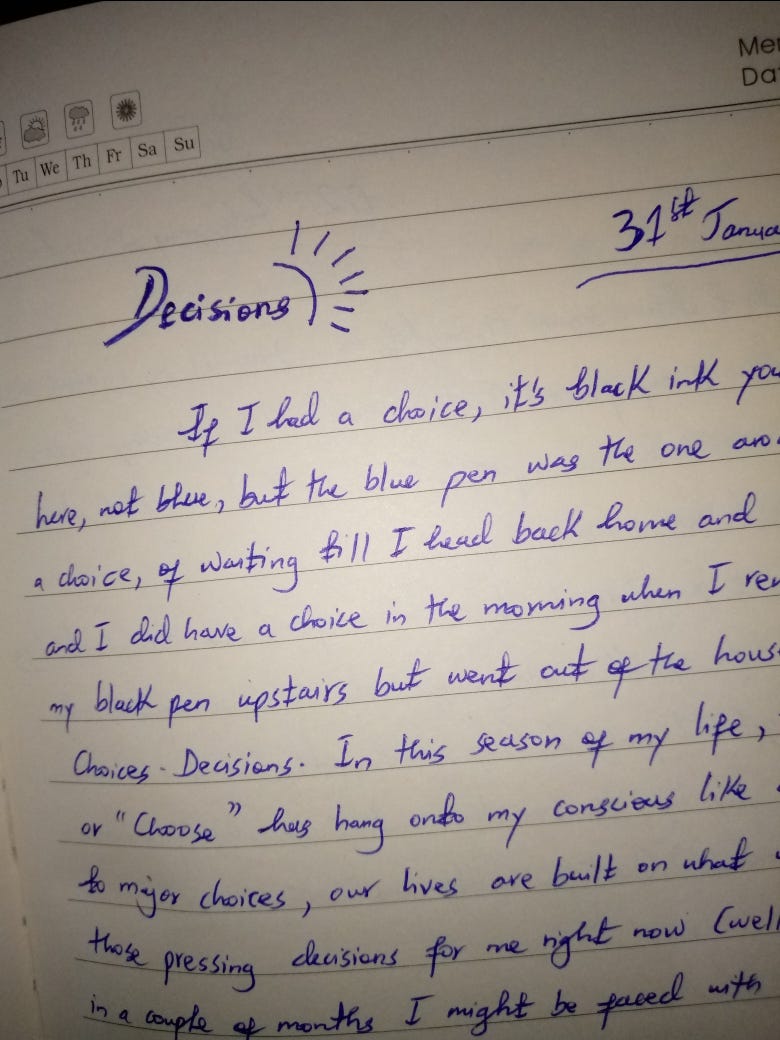 Me
Da
Tu We Th Fr Sa Su
31st Janua
Decisions
If I had a choice, it's black ink you
here, not blue, but the blue pen was the one aro
a choice, of waiting till I head back home and
and I did have a choice in the morning when I re
my black pen upstairs but went out of the hous
Choices. Decisions. In this season of my life,
or "Choose" has hang onto my conscious like
to major choices, our lives are built on what
those pressing decisions for me right now (well
in a couple of months I might be faced with